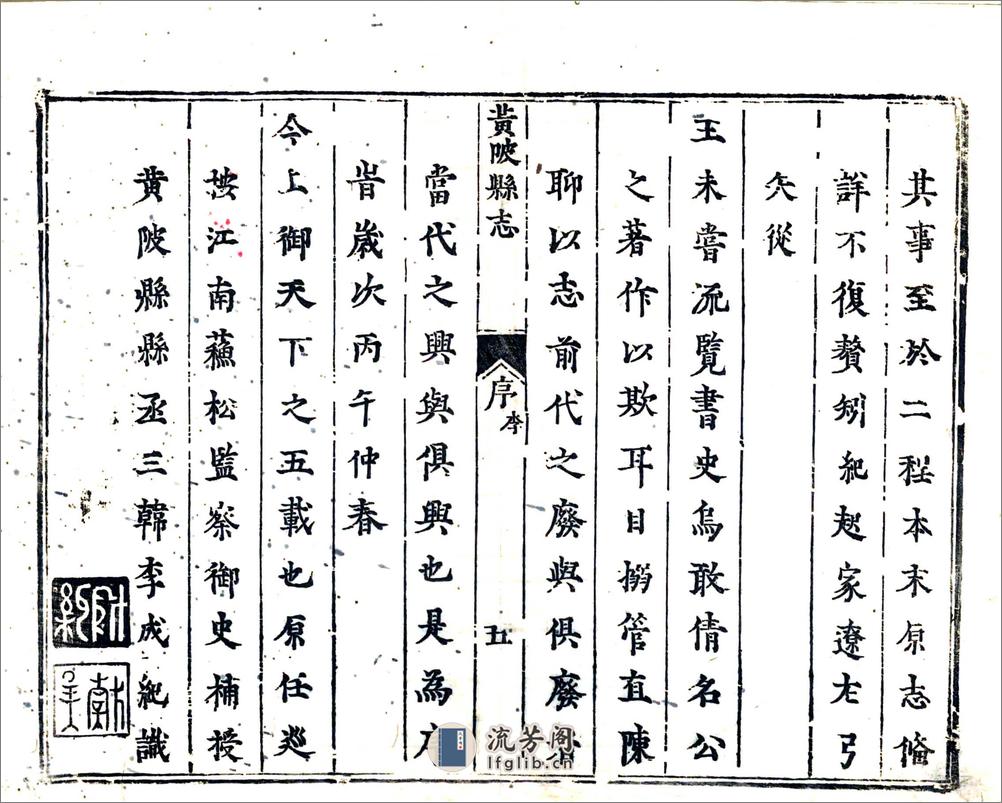 其事至於二程本末原志備
詳不復贅矧紀起家遼左弓
矢從
王未嘗流覽書史烏敢倩名公
之著作以欺耳目搦管直陳
聊以志前代之廢與俱廢
黃陂縣志
序
李
五
當代之興與俱興也是為序
旹歲次丙午仲春
今上御天下之五載也原任巡
按江南蘓松監察御史補授
黃陂縣縣丞三韓李成紀識
流芳阁
lfglib.cn